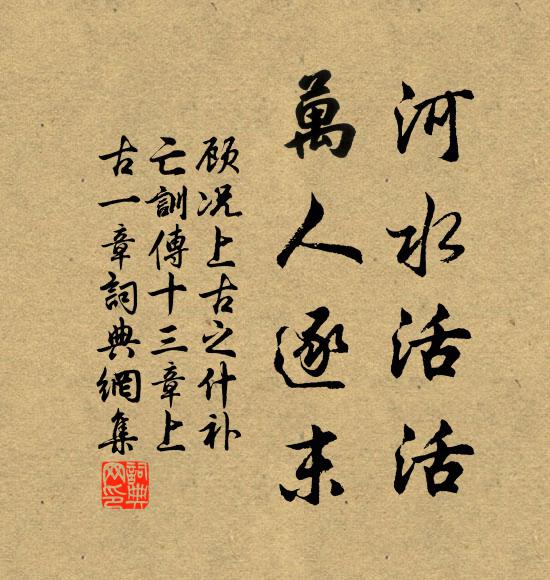 河水活活
萬人逐末
顾况上古之什补
亡訓傳十三章上
古一章詞典網集
詞典
网印